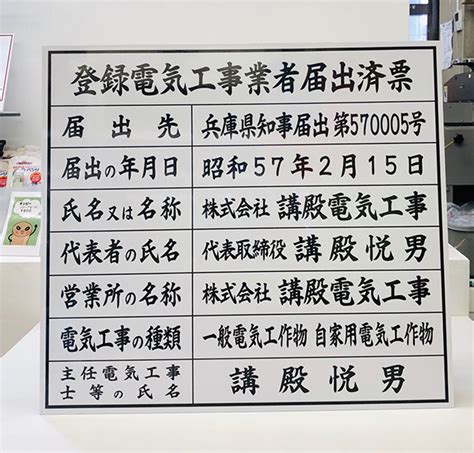 登録電気工事業者届出済票
届出先 兵庫県知事届出 第570005号
届出の年月日 昭和57年2月15日
氏名又は名称 株式会社 講殿電気工事
代表者の氏名 代表取締役 講殿悦男
営業所の名称 株式会社 講殿電気工事
電気工事の種類 一般電気工作物 自家用電気工作物
主任電気工事
士等の氏名 講殿悦男